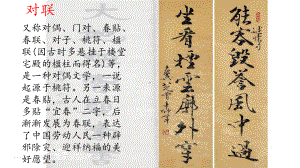 对联
又称对偶、门对、春贴、
春联、对子、桃符、楹
联(因古时多悬挂于楼堂
宅殿的楹柱而得名)等,
是一种对偶文学,一说
起源于桃符。另一来源
是春贴,古人在立春日
多贴“宜春”二字,后
渐渐发展为春联,表达
了中国劳动人民一种辟
邪除灾、迎祥纳福的美
好愿望。
能毁誉風中過
坐看雲廓外